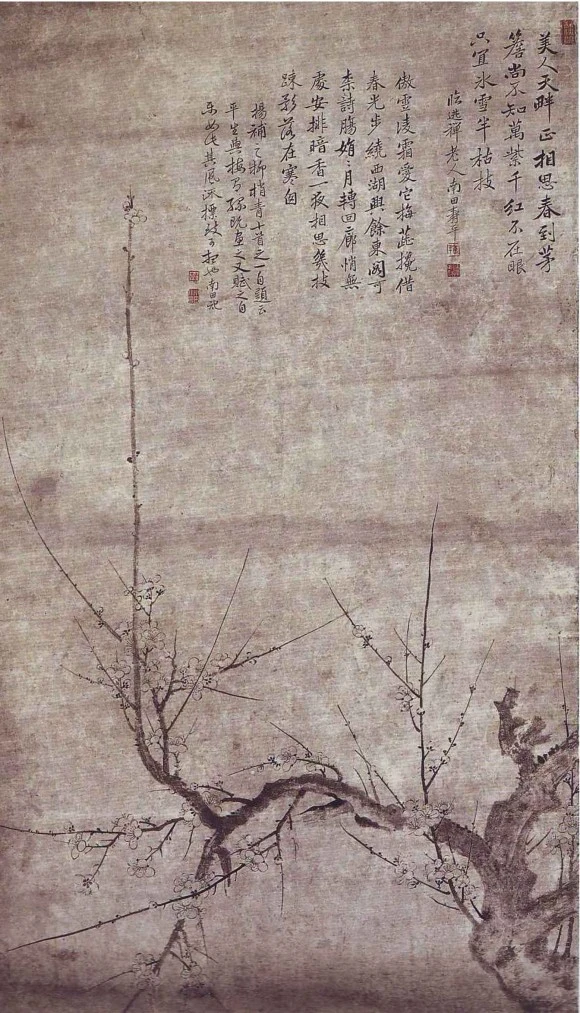 美人天畔正相思春到茅
簷尚不知萬紫千紅不在眼
只宜冰雪半枯枝
臨逃禪老人南田壽平
傲雪凌霜愛它梅蕋攙借
春光步繞西湖興餘東閣可
柰詩腸娟〻月轉回廊悄無
處安排暗香一夜相思幾枝
踈影落在寒囱
楊補之柳梢青十首之一自題云
平生與梅有緣既畫之又賦之自
樂如此其風流標致可想也南田記